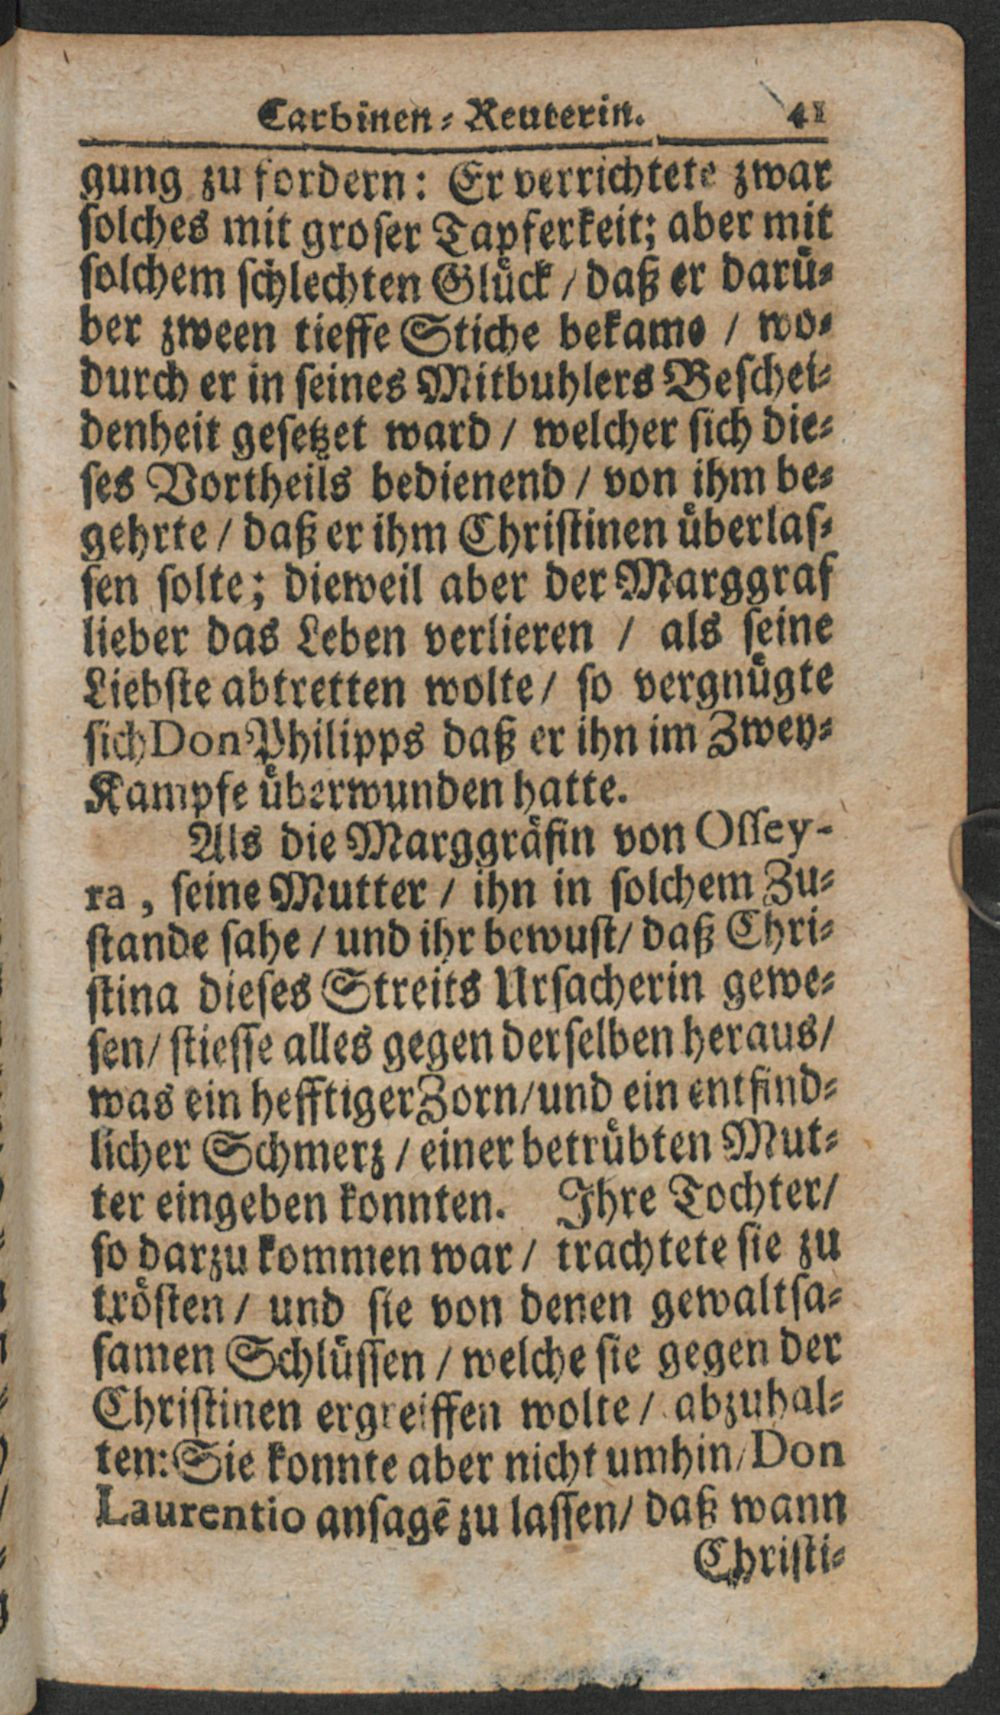 Carbinen-Reuterin. 41
gung zu fordern: Er verrichtete zwar
solches mit groser Tapferkeit; aber mit
solchem schlechten Glück / daß er darü-
ber zween tieffe Stiche bekame / wo-
durch er in seines Mitbuhlers Beschei-
denheit gesetzet ward / welcher sich die-
ses Vortheils bedienend / von ihm be-
gehrte / daß er ihm Christinen überlas-
sen solte; dieweil aber der Marggraf
lieber das Leben verlieren / als seine
Liebste abtretten wolte / so vergnügte
sich Don Philipps daß er ihn im Zwey-
Kampfe überwunden hatte.
Als die Marggräfin von Ossey-
ra, seine Mutter / ihn in solchem Zu-
stande sahe / und ihr bewust / daß Chri-
stina dieses Streits Ursacherin gewe-
sen / stiesse alles gegen derselben heraus /
was ein hefftiger Zorn / und ein entfind-
licher Schmerz / einer betrübten Mut-
ter eingeben konnten. Ihre Tochter /
so darzu kommen war / trachtete sie zu
trösten / und sie von denen gewaltsa-
samen Schlüssen / welche sie gegen der
Christinen ergreiffen wolte / abzuhal-
ten: Sie konnte aber nicht umhin / Don
Laurentio ansagē zu lassen / daß wann
Christi-